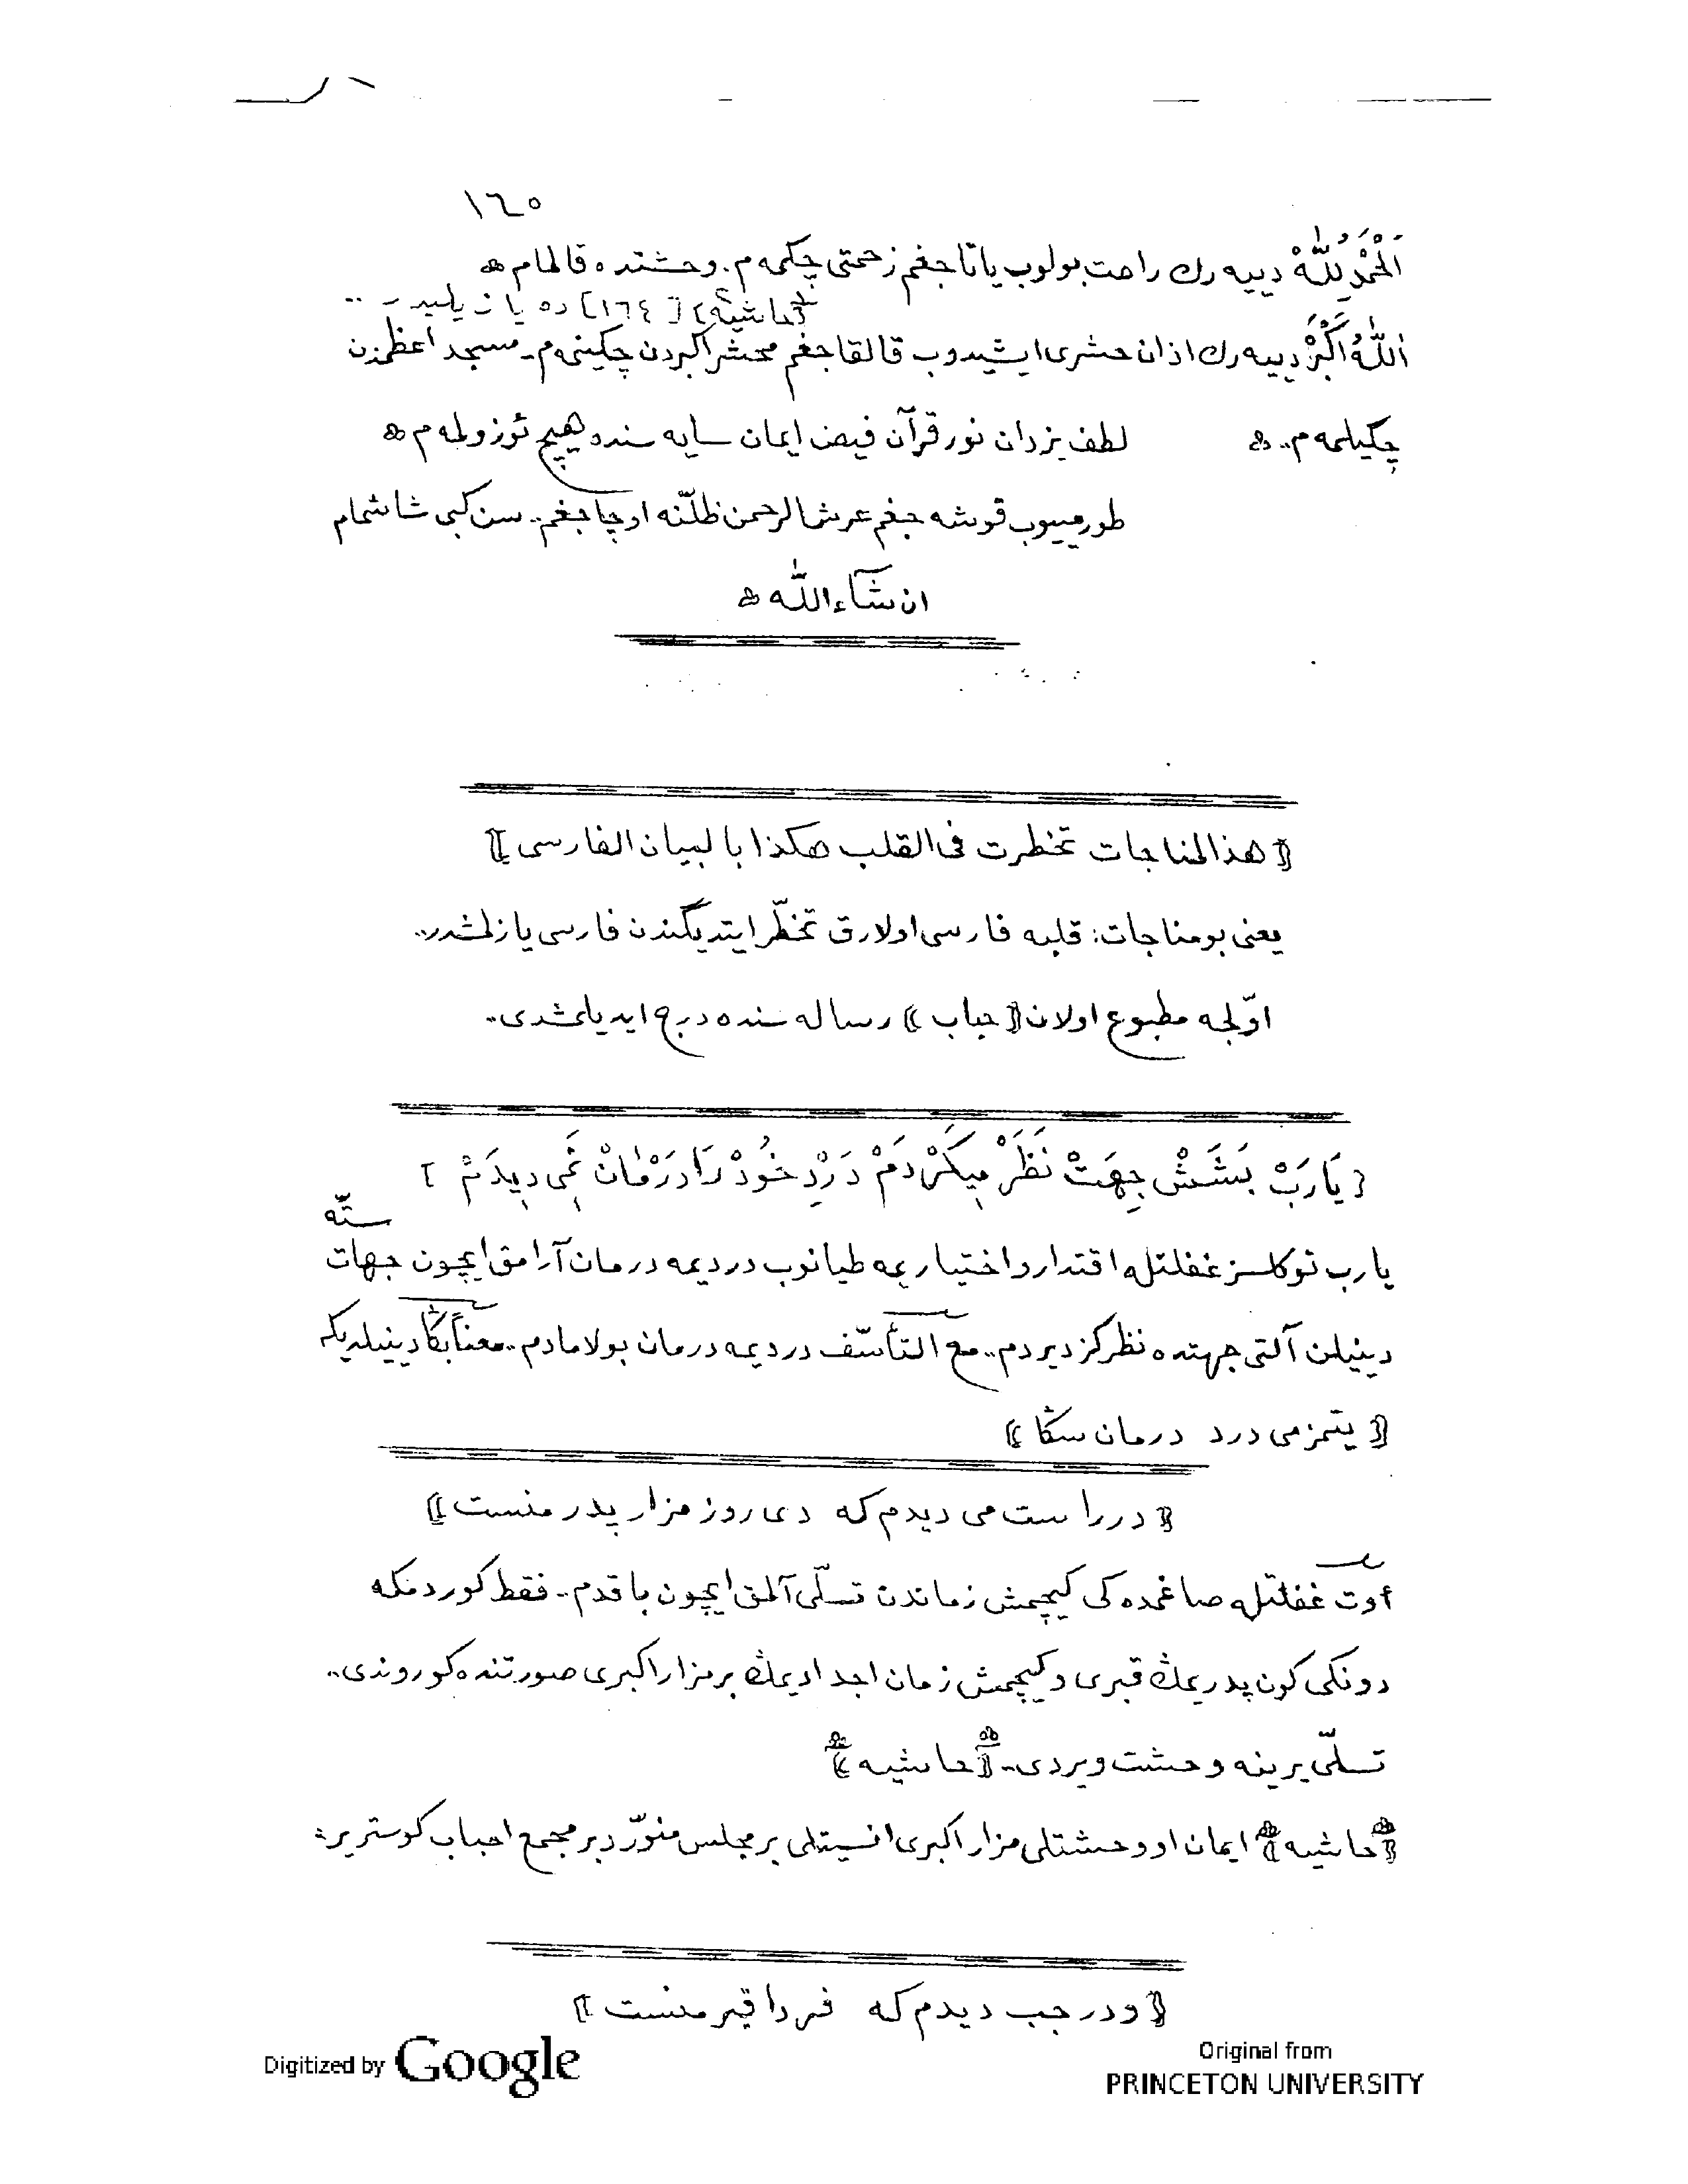 ١٦٥
اَلْحَمْدُ لِلّٰهْ دييه رك راحت بولوب ياتاجغم زحمتى چكمه م. وحشتده قالمام ۞
(حاشيه) [١٦٤] ده يازيليدر..
اَللّٰهُ اَكْبَرْ دييه رك اذان حشرى ايشيدوب قالقاجغم محشر اكبردن چكينمه م.. مسجد اعظمدن
چكيلمه م.. ۞ لطف يزدان نور قرآن فيض ايمان سايه سنده هيچ ئوزولمه م ۞
طورمييوب قوشه جغم عرش الرحمن ظلّنه اوچاجغم.. سن كبى شاشمام
ان شآء الله ۞
﴿ هذالمناجات تخطرت فى القلب هكذا بالبيان الفارسى ﴾
يعنى بو مناجات: قلبه فارسى اولارق تخطّر ايتديگندن فارسى يازلمشدر..
اوّلجه مطبوع اولان ﴿ حباب ﴾ رساله سنده درج ايديلمشدى..
﴿ يَارَبْ بَشَشْ جِهَتْ نَظَرْ مِيكَرْدَمْ دَرْدِ خُودْ رَا دَرْمَانْ نَمِى دِيدَمْ ﴾
يارب توكلسز غفلتله اقتدار و اختياريمه طيانوب درديمه درمان آرامق ايچون جهات ستّه
دينيلن آلتى جهتده نظر كزديردم.. مع التأسّف درديمه درمان بولامادم.. معناً بڭا دينيلديكه
﴿ يتمزمى درد درمان سڭا ﴾
﴿ در راست مى ديدم كه دى روز مزار پدر منست ﴾
أوت غفلتله صاغمده كى كيچمش زماندن تسلّى آلمق ايچون باقدم.. فقط كوردمكه
دونكى كون پدريمڭ قبرى و كيچمش زمان اجداديمڭ بر مزار اكبرى صورتنده كوروندى..
تسلّى يرينه وحشت ويردى.. ﴿حاشيه﴾
﴿حاشيه﴾ ايمان او وحشتلى مزار اكبرى انسيتلى بر مجلس منوّر و بر مجمع احباب كوسترير:
﴿ و در چپ ديدم كه فردا قبر منست ﴾
Digitized by Google
Original from
PRINCETON UNIVERSITY